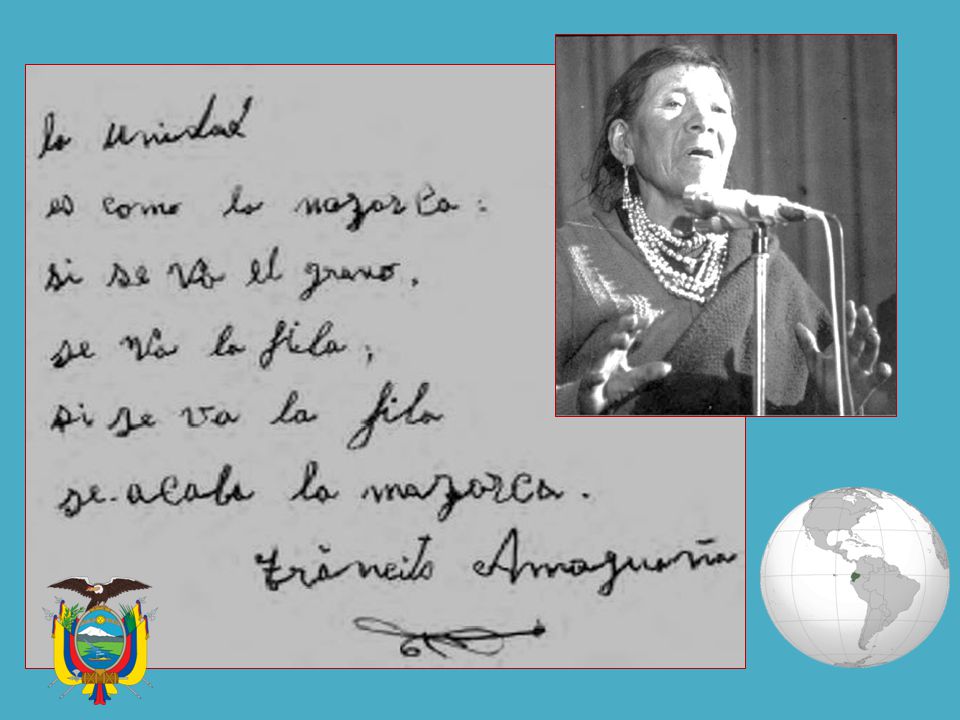 la unidad
es como la mazorca:
si se va el grano,
se va la fila;
si se va la fila
se acaba la mazorca.
tránsito Amaguaña